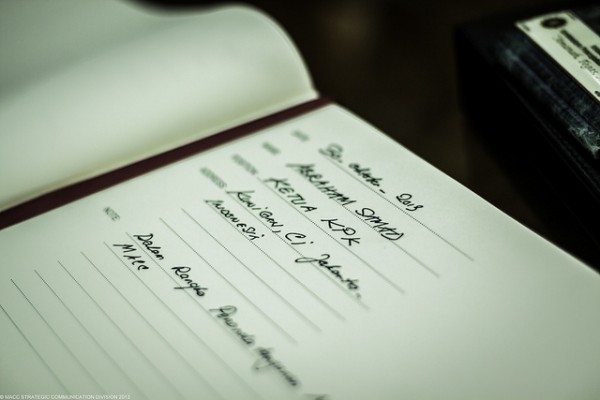 DATE
NAME
ABRAHAM SAMAD
POSITION
KETUA KPK
ADDRESS
KUNINGAN, Cj Jakarta.
INDONESIA
NOTE:
Dalam Rangka
MACC
© MACC STRATEGIC COMMUNICATION DIVISION 2013